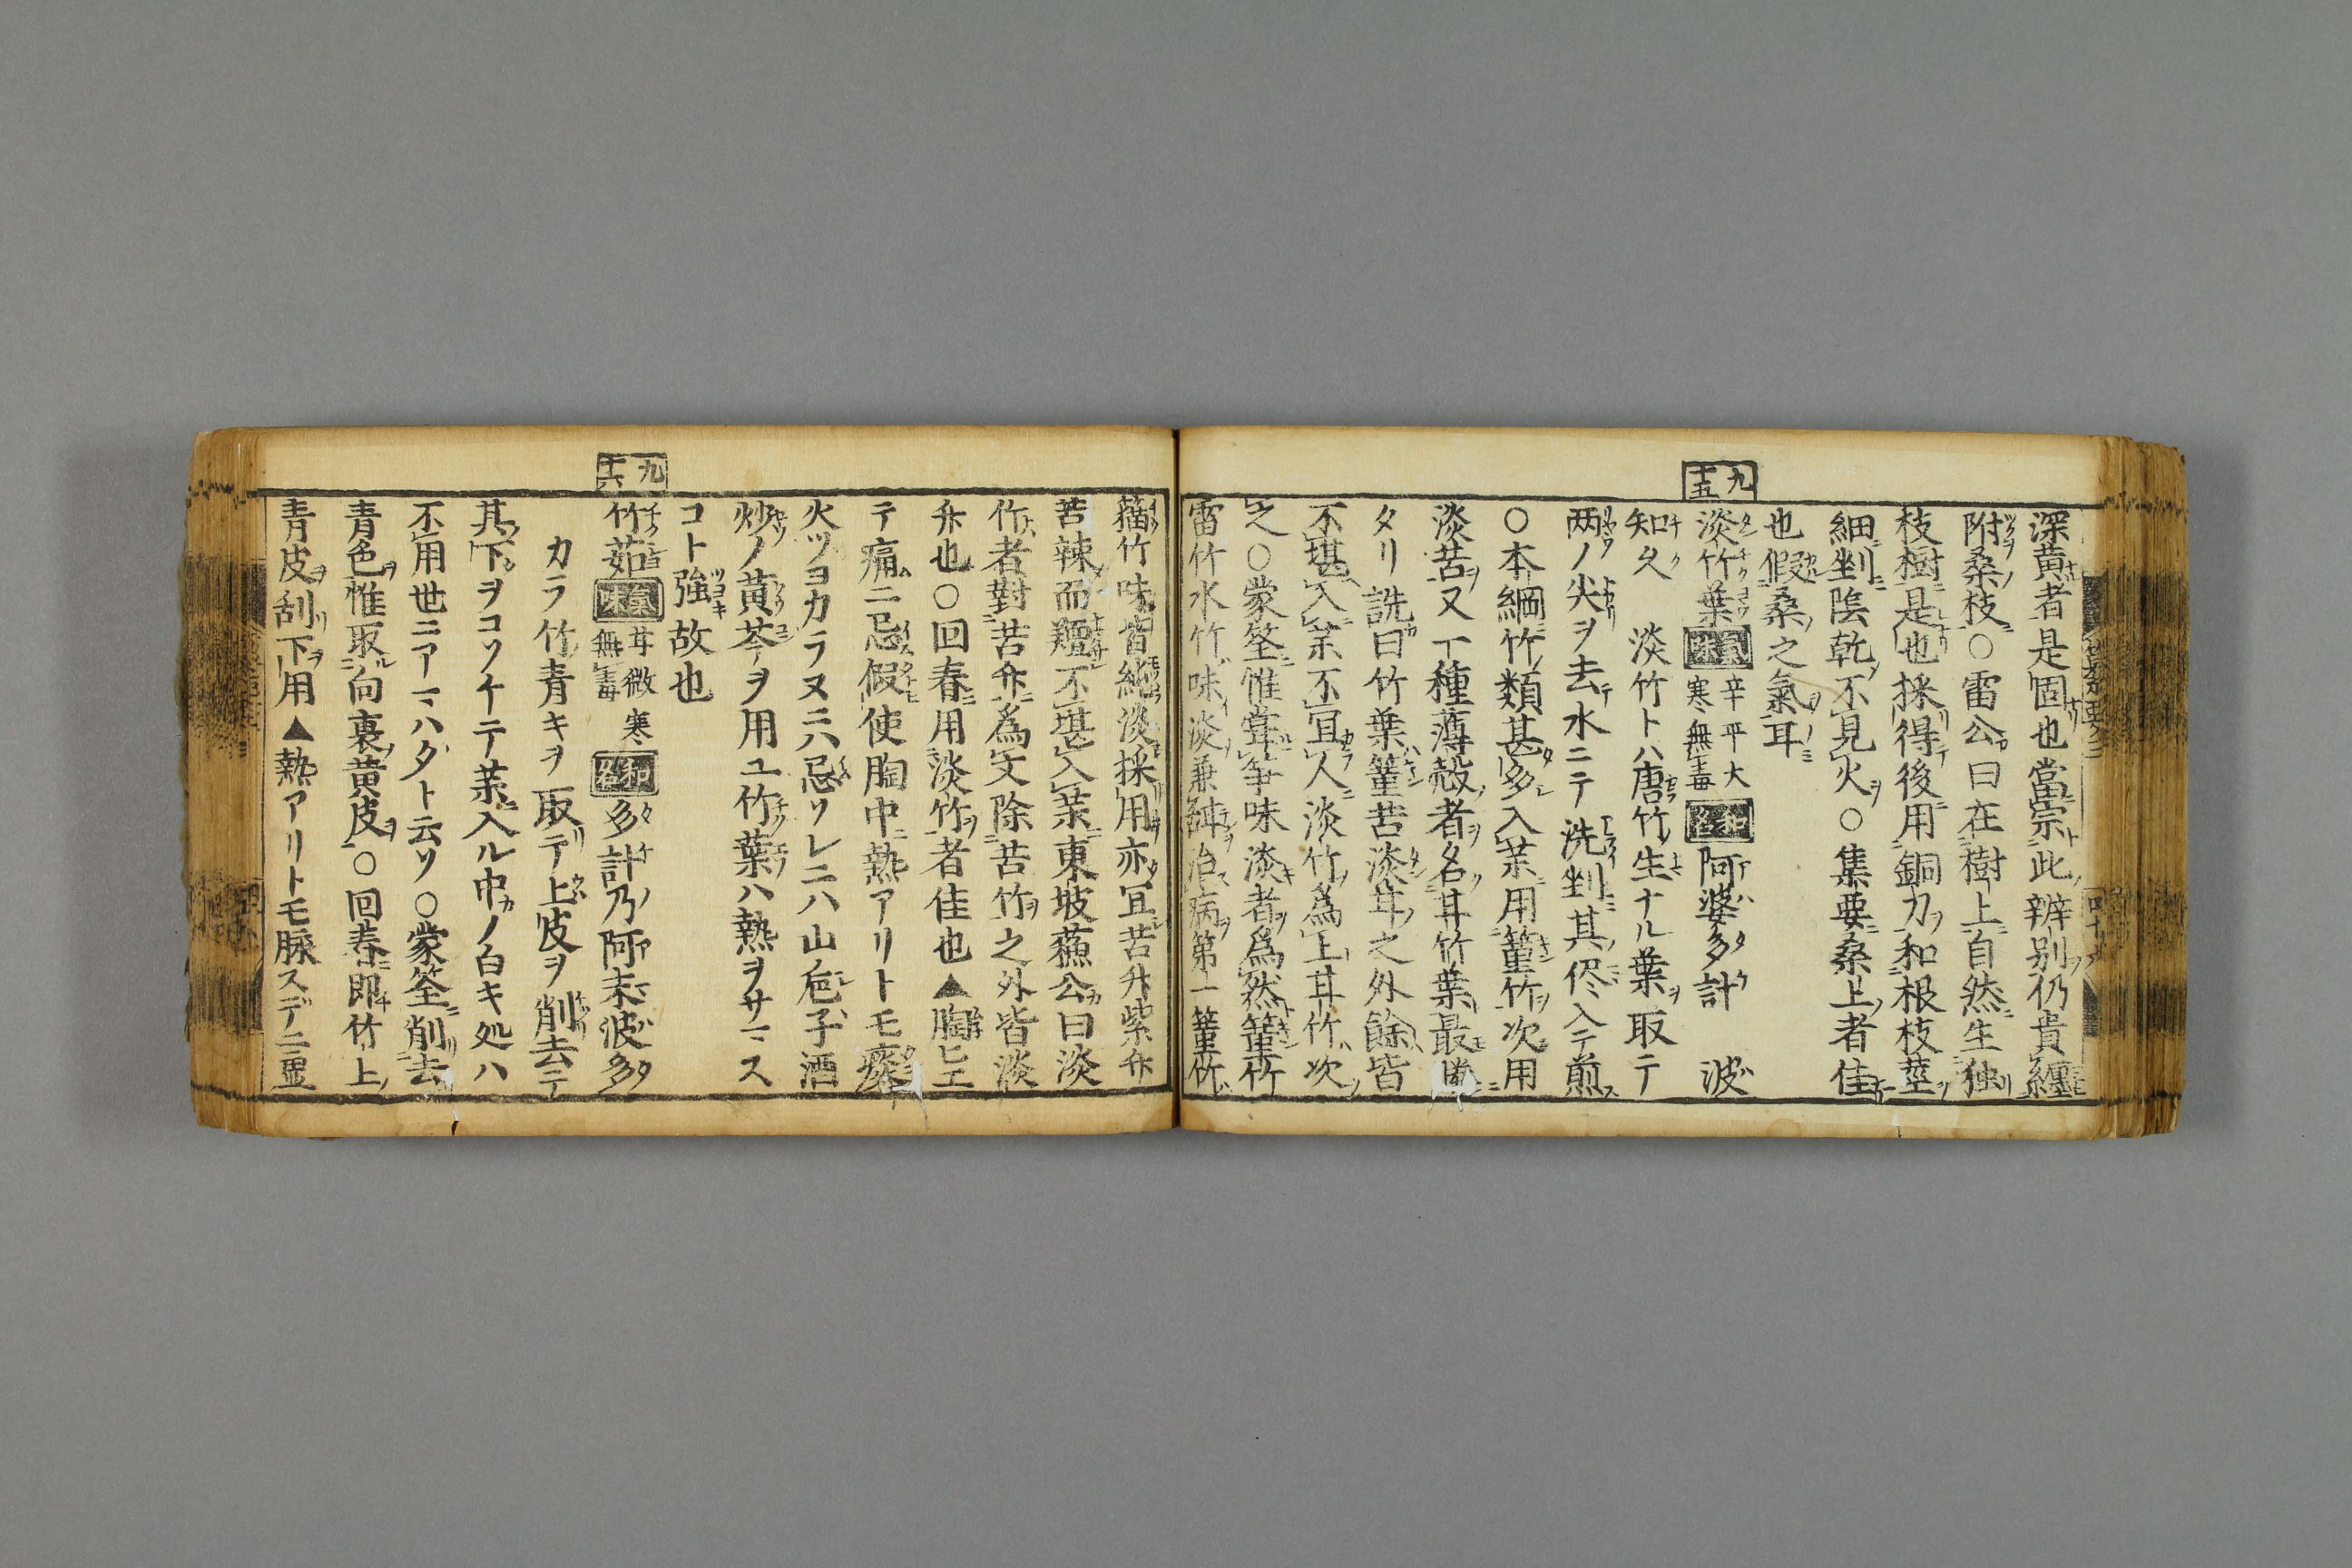 九十五
深黄者是固也當宗此辨别仍貴纏
附桑枝○雷公曰在樹上自然生独
枝樹是也採得後用銅刀和根枝莖
細剉陰乾不見火○集要桑上者佳
也假桑之氣耳
淡竹葉 氣味 辛平大寒無毒 和名 阿婆多計 波
知久 淡竹トハ唐竹生ナル葉取テ
两ノ尖ヲ去水ニテ洗剉其侭入テ煎
○本綱竹類甚多入茱用篁竹次用
淡苦又一種薄殻者名耳竹葉最勝
タリ詵曰竹葉篁苦淡耳之外餘皆
不堪入茱不宜人淡竹為上耳竹次
之○蒙筌惟嘗笋味淡者為然篁竹
雷竹水竹味淡兼鹹治病第一篁竹
九十六
竹味皆純淡採用亦宜苦竹紫竹
苦辣而 不堪入茱東坡蘓公曰淡
竹者對苦竹為文除苦竹之外皆淡
竹也○回春用淡竹者佳也▲胸
テ痛ニ忌假使胸中熱アリトモ痰
火ツヨカラヌニハ忌ソレニハ山梔子酒
炒ノ黄芩ヲ用ユ竹葉ハ熱ヲサマス
コト強故也
竹茹 氣味 甘微寒無毒 和名 多計乃阿末波多
カラ竹青キヲ取テ上皮ヲ削去テ
其下ヲコソケテ茱入ル中ノ白キ処ハ
不用世ニアマハダト云ソ○蒙筌削去
青色惟取向裏黄皮○回春即竹上
青皮刮下用▲熱アリトモ脉スデニ霊